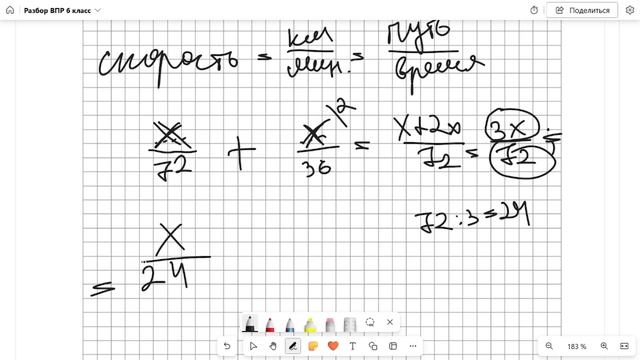 Разбор ВПР 6 класс
Поделиться
скорость = км/мин. = путь/время
x/72 + x/36 \2 = x+2x/72 = 3x/72 =
72 : 3 = 24
= x/24
183 %